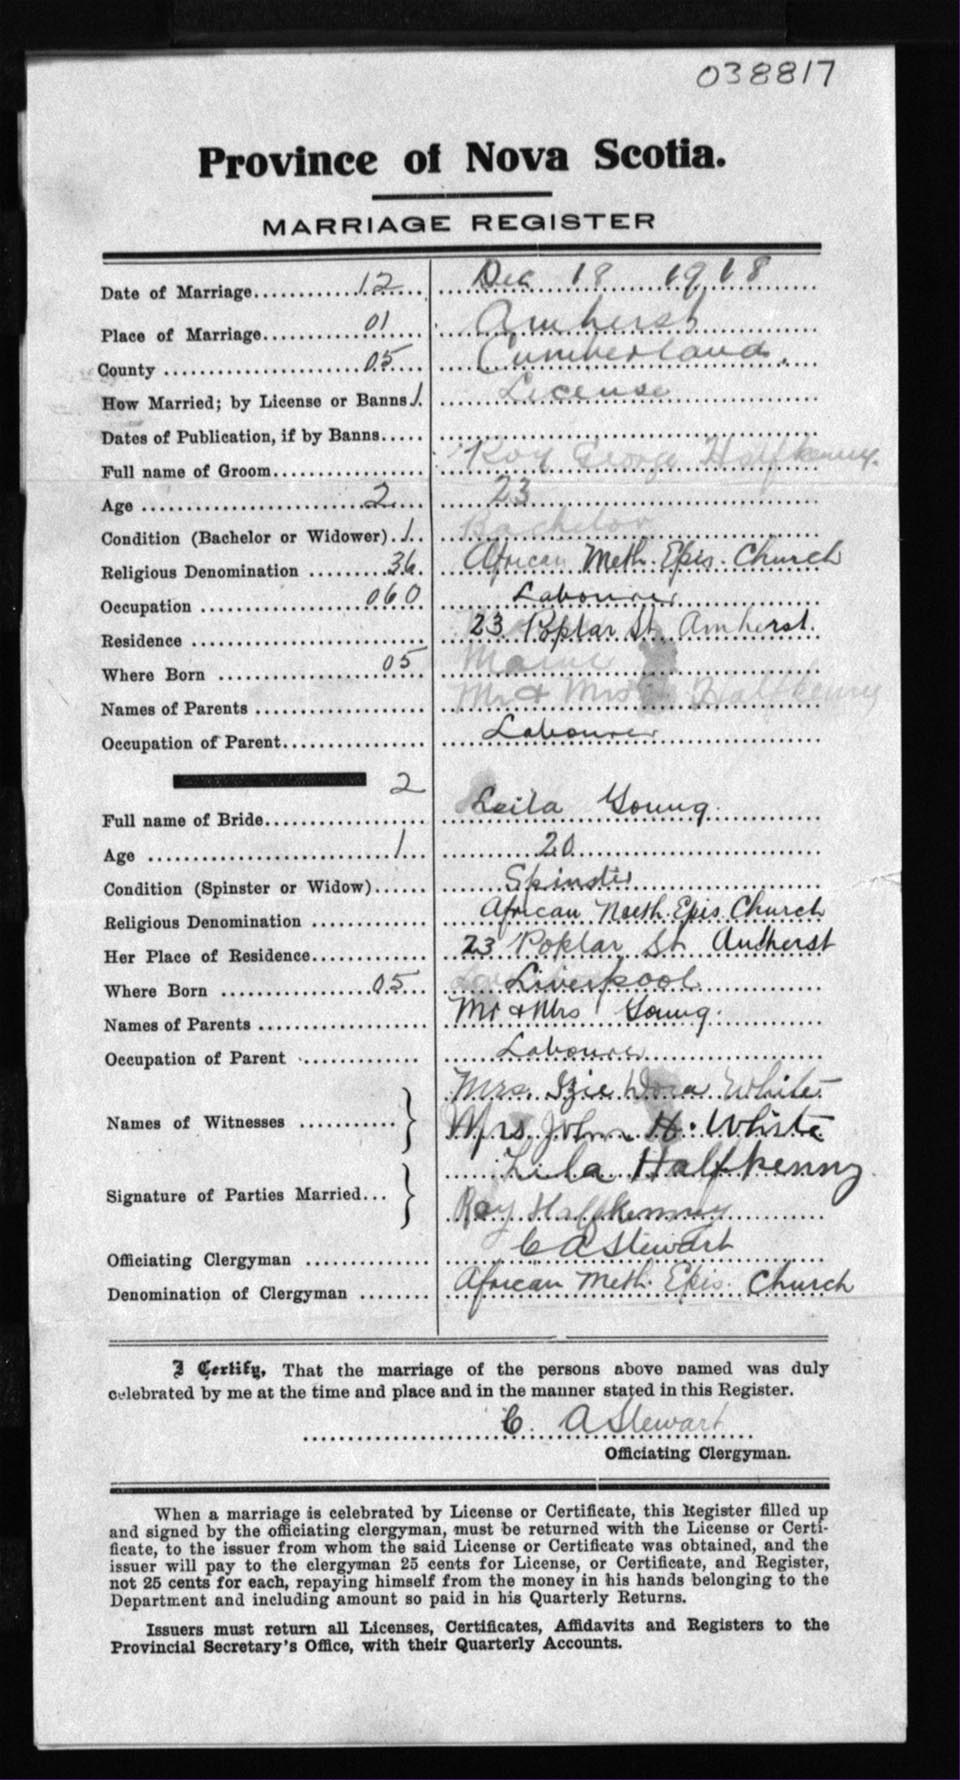 038817
Province of Nova Scotia.
MARRIAGE REGISTER
Date of Marriage............12.... Dec 18 1918
Place of Marriage............01.... Amherst
County ......................05.... Cumberland.
How Married; by License or Banns 1. License
Dates of Publication, if by Banns.....
Full name of Groom................ Roy George Halfkenny.
Age ........................2.... 23
Condition (Bachelor or Widower). 1.. Bachelor
Religious Denomination ........36. African Meth. Epis. Church
Occupation ..................060 Labourer
Residence ........................... 23 Poplar St. Amherst.
Where Born ..................05 Maine
Names of Parents .................. Mr & Mrs Halfkenny
Occupation of Parent................ Labourer
2
Full name of Bride.................. Leila Young.
Age ..........................1... 20
Condition (Spinster or Widow)...... Spinster
Religious Denomination ............. African Meth. Epis. Church
Her Place of Residence............. 23 Poplar St Amherst
Where Born ..................05... Liverpool
Names of Parents .................. Mr & Mrs Young.
Occupation of Parent ............. Labourer
Mrs. Izie Dora White
Names of Witnesses ........... Mrs John H. White
Lila Halfkenny
Signature of Parties Married... Roy Halfkenny
Officiating Clergyman .............. C A Stewart
Denomination of Clergyman ........ African Meth. Epis. Church
I Certify, That the marriage of the persons above named was duly
celebrated by me at the time and place and in the manner stated in this Register.
C. A Stewart
Officiating Clergyman.
When a marriage is celebrated by License or Certificate, this Register filled up
and signed by the officiating clergyman, must be returned with the License or Certi-
ficate, to the issuer from whom the said License or Certificate was obtained, and the
issuer will pay to the clergyman 25 cents for License, or Certificate, and Register,
not 25 cents for each, repaying himself from the money in his hands belonging to the
Department and including amount so paid in his Quarterly Returns.
Issuers must return all Licenses, Certificates, Affidavits and Registers to the
Provincial Secretary's Office, with their Quarterly Accounts.